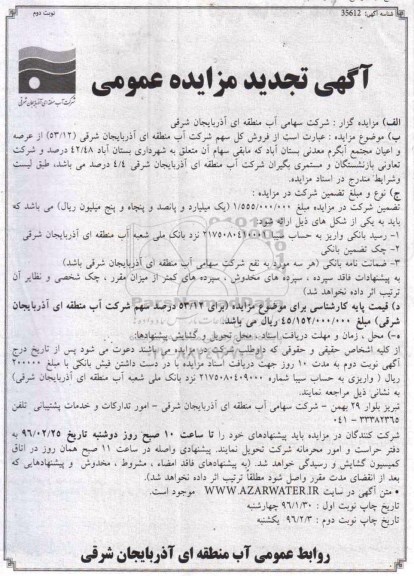 شناسه آگهی: 35612
نوبت دوم
شرکت آب منطقه ای آذربایجان شرقی
آگهی تجدید مزایده عمومی
الف) مزایده گزار : شرکت سهامی آب منطقه ای آذربایجان شرقی
ب) موضوع مزایده : عبارت است از فروش کل سهم شرکت آب منطقه ای آذربایجان شرقی (۵۳/۱۲) از عرصه
و اعیان مجتمع آبگرم معدنی بستان آباد که مابقی سهام آن متعلق به شهرداری بستان آباد ۴۲/۴۸ درصد و شرکت
تعاونی بازنشستگان و مستمری بگیران شرکت آب منطقه ای آذربایجان شرقی ۴/۴ درصد می باشد، طبق لیست
وشرایط مندرج در اسناد مزایده.
ج) نوع و مبلغ تضمین شرکت در مزایده :
تضمین شرکت در مزایده مبلغ ۱/۵۵۵/۰۰۰/۰۰۰ (یک میلیارد و پانصد و پنجاه و پنج میلیون ریال) می باشد که
باید به یکی از شکل های ذیل ارائه شود:
۱- رسید بانکی واریز به حساب سیبا نزد بانک ملی شعبه آب منطقه ای آذربایجان شرقی
۲- چک تضمین بانکی
۳- ضمانت نامه بانکی (هر سه مورد به نفع شرکت سهامی آب منطقه ای آذربایجان شرقی باشد)
به پیشنهادات فاقد سپرده ، سپرده های مخدوش ، سپرده های کمتر از میزان مقرر ، چک شخصی و نظایر آن
ترتیب اثر داده نخواهد شد)
د) قیمت پایه کارشناسی برای موضوع مزایده (برای ۵۳/۱۲ درصد سهم شرکت آب منطقه ای آذربایجان
شرقی) مبلغ ۴۵/۱۵۲/۰۰۰/۰۰۰ ریال می باشد.
ه)- محل ، زمان و مهلت دریافت اسناد ، محل تحویل و گشایش پیشنهادها:
از کلیه اشخاص حقیقی و حقوقی که داوطلب شرکت در مزایده می باشند دعوت می شود پس از تاریخ درج
آگهی نوبت دوم به مدت ۱۰ روز جهت دریافت اسناد مزایده با در دست داشتن فیش بانکی با مبلغ ۲۰۰۰۰۰
ریال ( واریزی به حساب سیبا شماره ۲۱۷۵۰۸۰۴۰۹۰۰۰ نزد بانک ملی شعبه آب منطقه ای آذربایجان شرقی)
به نشانی ذیل مراجعه نمایند.
تبریز بلوار ۲۹ بهمن – شرکت سهامی آب منطقه ای آذربایجان شرقی – امور تدارکات و خدمات پشتیبانی تلفن
۳۳۳۸۲۳۶۵ - ۰۴۱
شرکت کنندگان در مزایده باید پیشنهادهای خود را تا ساعت ۱۰ صبح روز دوشنبه تاریخ ۹۶/۰۲/۲۵ به
دفتر حراست و امور محرمانه شرکت تحویل نمایند. پیشنهادی واصله در ساعت ۱۱ صبح همان روز در اتاق
کمیسیون گشایش و رسیدگی خواهد شد. (به پیشنهادهای فاقد امضاء ، مشروط ، مخدوش و پیشنهادهایی که
بعد از انقضای مدت مقرر واصل شود مطلقاً ترتیب اثر داده نخواهد شد).
• متن آگهی در سایت WWW.AZARWATER.IR موجود است.
تاریخ چاپ نوبت اول : ۹۶/۱/۳۰ چهارشنبه
تاریخ چاپ نوبت دوم : ۹۶/۲/۳ یکشنبه
روابط عمومی آب منطقه ای آذربایجان شرقی